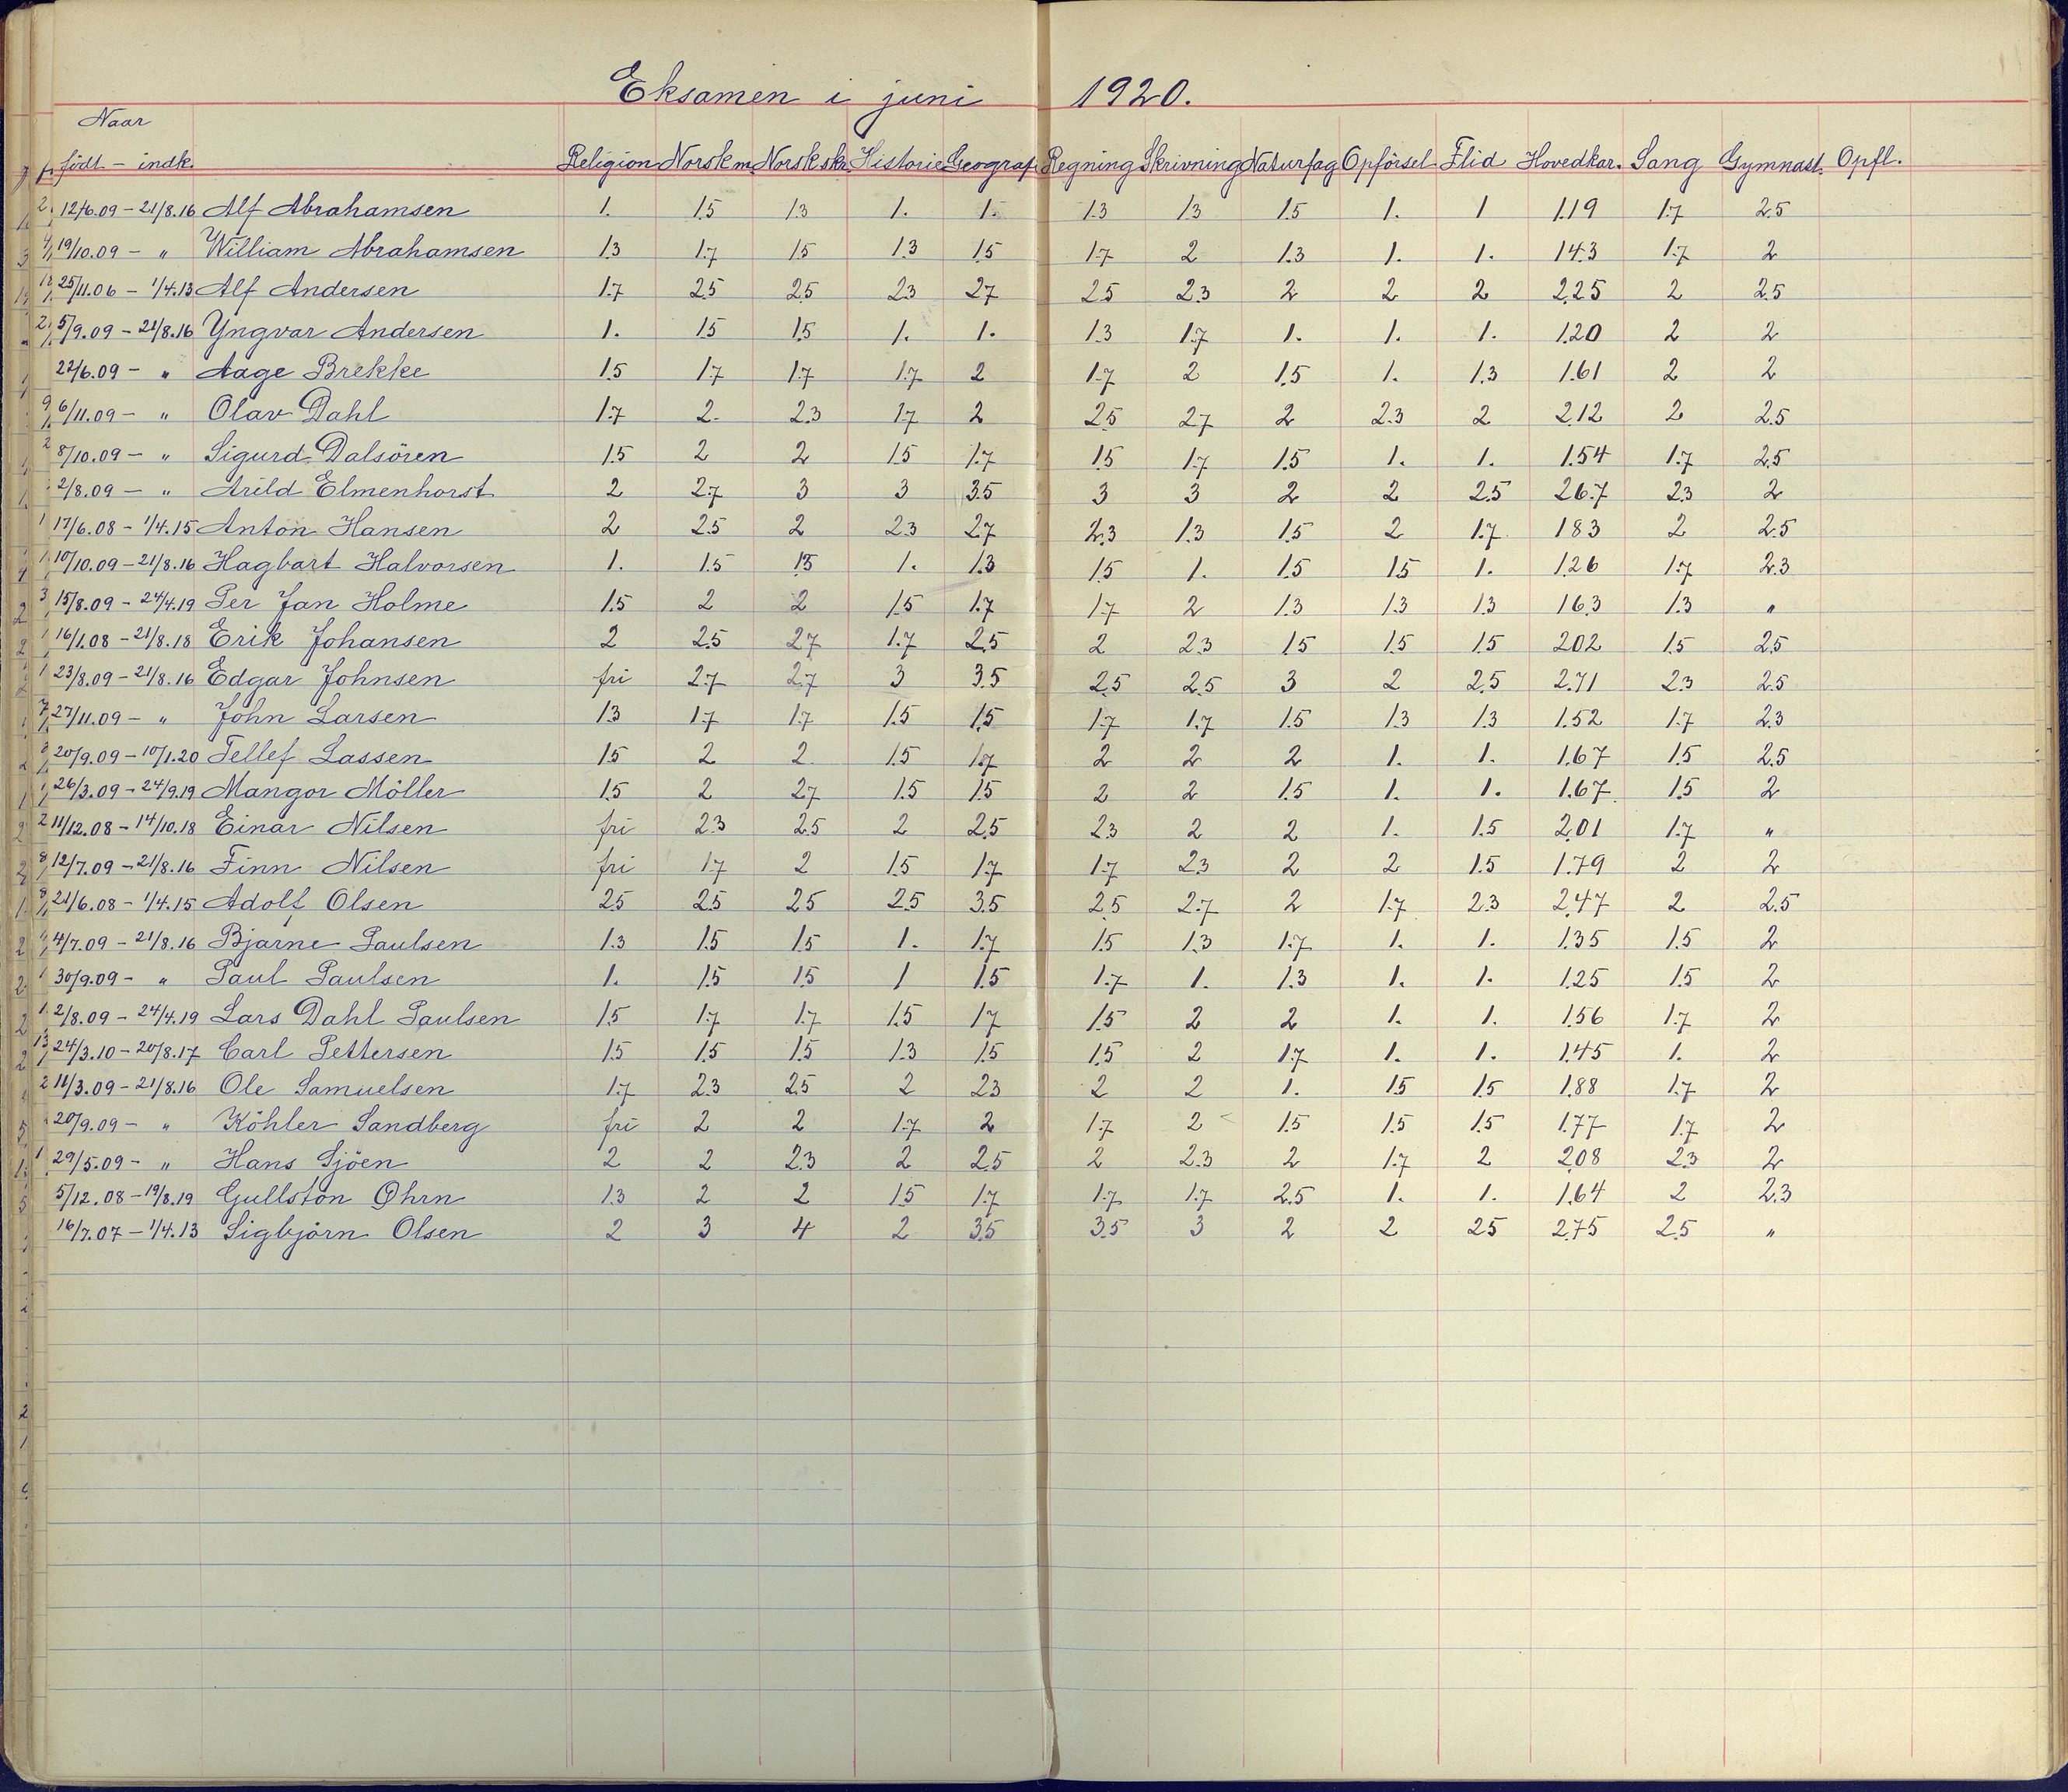 Eksamen i juni 1920.
Naar
födt - indk. Religion Norsk m. Norsk skr. Historie Geografi Regning Skrivning Naturfag Opförsel Flid Hovedkar. Sang Gymnast. Opfl.
12/6.09 - 21/8.16 Alf Abrahamsen 1. 1.5 1.3 1. 1. 1.3 1.3 1.5 1. 1 1.19 1.7 2.5
19/10.09 - " William Abrahamsen 1.3 1.7 1.5 1.3 1.5 1.7 2 1.3 1. 1. 1.43 1.7 2
25/11.06 - 1/4.13 Alf Andersen 1.7 2.5 2.5 2.3 2.7 2.5 2.3 2 2 2 2.25 2 2.5
5/9.09 - 21/8.16 Yngvar Andersen 1. 1.5 1.5 1. 1. 1.3 1.7 1. 1. 1. 1.20 2 2
22/6.09 - " Aage Brekke 1.5 1.7 1.7 1.7 2 1.7 2 1.5 1. 1.3 1.61 2 2
6/11.09 - " Olav Dahl 1.7 2. 2.3 1.7 2 2.5 2.7 2 2.3 2 2.12 2 2.5
8/10.09 - " Sigurd Dalsören 1.5 2 2 1.5 1.7 1.5 1.7 1.5 1. 1. 1.54 1.7 2.5
2/8.09 - " Arild Elmenhorst 2 2.7 3 3 3.5 3 3 2 2 2.5 2.67 2.3 2
17/6.08 - 1/4.15 Anton Hansen 2 2.5 2 2.3 2.7 2.3 1.3 1.5 2 1.7 1.83 2 2.5
10/10.09 - 21/8.16 Hagbart Halvorsen 1. 1.5 1.5 1. 1.3 1.5 1. 1.5 1.5 1. 1.26 1.7 2.3
15/8.09 - 24/4.19 Per Jan Holme 1.5 2 2 1.5 1.7 1.7 2 1.3 1.3 1.3 1.63 1.3 "
16/1.08 - 21/8.18 Erik Johansen 2 2.5 2.7 1.7 2.5 2 2.3 1.5 1.5 1.5 2.02 1.5 2.5
23/8.09 - 21/8.16 Edgar Johnsen fri 2.7 2.7 3 3.5 2.5 2.5 3 2 2.5 2.71 2.3 2.5
27/11.09 - " John Larsen 1.3 1.7 1.7 1.5 1.5 1.7 1.7 1.5 1.3 1.3 1.52 1.7 2.3
20/9.09 - 10/1.20 Tellef Lassen 1.5 2 2. 1.5 1.7 2 2 2 1. 1. 1.67 1.5 2.5
26/3.09 - 24/9.19 Mangor Möller 1.5 2 2.7 1.5 1.5 2 2 1.5 1. 1. 1.67 1.5 2
11/12.08 - 14/10.18 Einar Nilsen fri 2.3 2.5 2 2.5 2.3 2 2 1. 1.5 2.01 1.7 "
12/7.09 - 21/8.16 Finn Nilsen fri 1.7 2 1.5 1.7 1.7 2.3 2 2 1.5 1.79 2 2
21/6.08 - 1/4.15 Adolf Olsen 2.5 2.5 2.5 2.5 3.5 2.5 2.7 2 1.7 2.3 2.47 2 2.5
4/7.09 - 21/8.16 Bjarne Paulsen 1.3 1.5 1.5 1. 1.7 1.5 1.3 1.7 1. 1. 1.35 1.5 2
30/9.09 - " Paul Paulsen 1. 1.5 1.5 1 1.5 1.7 1. 1.3 1. 1. 1.25 1.5 2
2/8.09 - 24/4.19 Lars Dahl Paulsen 1.5 1.7 1.7 1.5 1.7 1.5 2 2 1. 1. 1.56 1.7 2
24/3.10 - 20/8.17 Carl Pettersen 1.5 1.5 1.5 1.3 1.5 1.5 2 1.7 1. 1. 1.45 1. 2
11/3.09 - 21/8.16 Ole Samuelsen 1.7 2.3 2.5 2 2.3 2 2 1. 1.5 1.5 1.88 1.7 2
20/9.09 - " Köhler Sandberg fri 2 2 1.7 2 1.7 2 1.5 1.5 1.5 1.77 1.7 2
29/5.09 - " Hans Sjöen 2 2 2.3 2 2.5 2 2.3 2 1.7 2 2.08 2.3 2
5/12.08 - 19/8.19 Gullston Øhrn 1.3 2 2 1.5 1.7 1.7 1.7 2.5 1. 1. 1.64 2 2.3
16/7.07 - 1/4.13 Sigbjörn Olsen 2 3 4 2 3.5 3.5 3 2 2 2.5 2.75 2.5 "